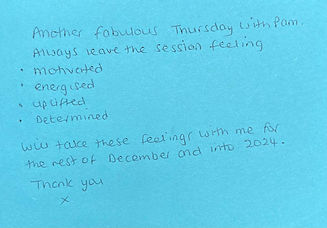 Another fabulous Thursday with Pam.
Always leave the session feeling
• motivated
• energised
• uplifted
• Determined
Will take these feelings with me for
the rest of December and into 2024.
Thank you
x